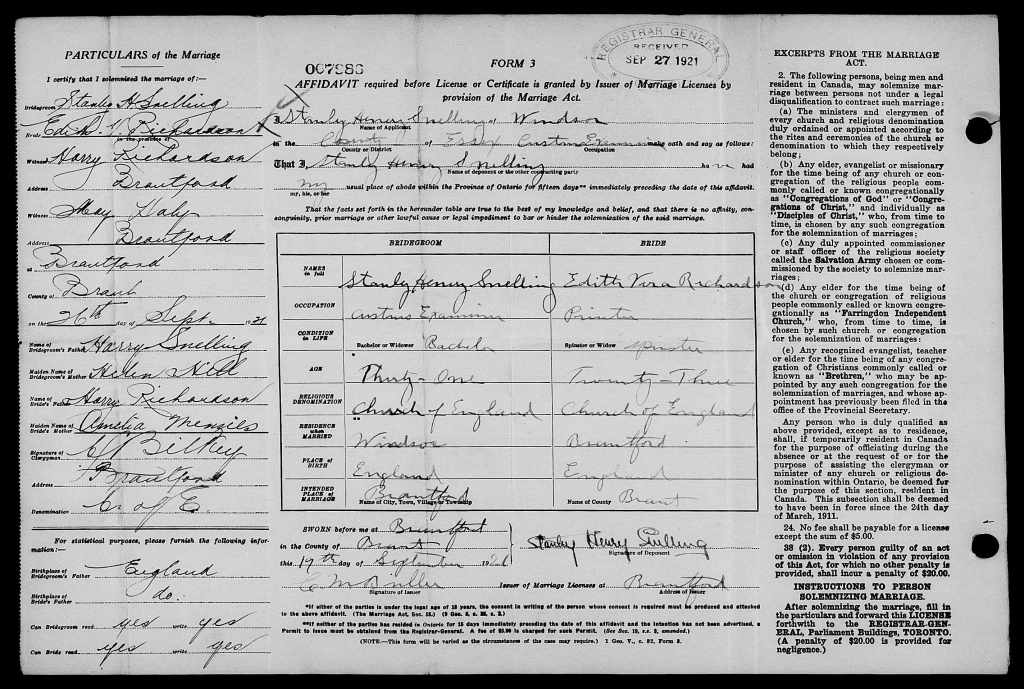 PARTICULARS of the Marriage
I certify that I solemnized the marriage of:—
Bridegroom Stanley H. Snelling
Bride Edith V. Richardson
in the presence of
Witness Harry Richardson
Address Brantford
Witness May
Address Brantford
at Brantford
County of Brant
on the 26th day of Sept. 1921
Name of Bridegroom's Father Harry Snelling
Maiden Name of Bridegroom's Mother Helen Hill
Name of Bride's Father Harry Richardson
Maiden Name of Bride's Mother Amelia Menzies
Signature of Clergyman
Address Brantford
Denomination C. of E.
For statistical purposes, please furnish the following information:—
Birthplace of Bridegroom's Father England
Birthplace of Bride's Father do.
Can Bridegroom read yes write yes
Can Bride read yes write yes
007986
FORM 3
REGISTRAR GENERAL
RECEIVED
SEP 27 1921
AFFIDAVIT required before License or Certificate is granted by Issuer of Marriage Licenses by
provision of the Marriage Act.
I, Stanley Henry Snelling of Windsor
Name of Applicant
in the County of Essex Customs Examiner make oath and say as follows:
County or District Occupation
That I, Stanley Henry Snelling have had
Name of deponent or the other contracting party
my usual place of abode within the Province of Ontario for fifteen days** immediately preceding the date of this affidavit.
my, his, or her
That the facts set forth in the hereunder table are true to the best of my knowledge and belief, and that there is no affinity, con-
sanguinity, prior marriage or other lawful cause or legal impediment to bar or hinder the solemnisation of the said marriage.
BRIDEGROOM BRIDE
NAMES in full Stanley Henry Snelling Edith Vira Richardson
OCCUPATION Customs Examiner Printer
CONDITION IN LIFE Bachelor or Widower Bachelor Spinster or Widow Spinster
AGE Thirty-One Twenty-Three
RELIGIOUS DENOMINATION Church of England Church of England
RESIDENCE when MARRIED Windsor Brantford
PLACE OF BIRTH England England
INTENDED PLACE OF MARRIAGE Brantford Name of City, Town, Village or Township Name of County Brant
SWORN before me at Brantford
in the County of Brant
this 19th day of September 1921
Stanley Henry Snelling
Signature of Deponent
Signature of Issuer
Issuer of Marriage Licenses at Brantford
Address of Issuer
*If either of the parties is under the legal age of 18 years, the consent in writing of the person whose consent is required must be produced and attached
to the above affidavit. (The Marriage Act, Sec. 15.) (9 Geo. 5, c. 35, s. 2.)
**If neither of the parties has resided in Ontario for 15 days immediately preceding the date of this affidavit and the intention has not been advertised, a
Permit to issue must be obtained from the Registrar-General. A fee of $5.00 is charged for such Permit. (See Sec. 19, s.s. 2, amended.)
(NOTE.—This form will be varied as the circumstances of the case may require.) 1 Geo. V., c. 32, Form 3.
EXCERPTS FROM THE MARRIAGE
ACT.
2. The following persons, being men and
resident in Canada, may solemnize mar-
riage between persons not under a legal
disqualification to contract such marriage:
(a) The ministers and clergymen of
every church and religious denomination
duly ordained or appointed according to
the rites and ceremonies of the church or
denomination to which they respectively
belong;
(b) Any elder, evangelist or missionary
for the time being of any church or con-
gregation of the religious people com-
monly called or known congregationally
as "Congregations of God" or "Congre-
gations of Christ," and individually as
"Disciples of Christ," who, from time to
time, is chosen by any such congregation
for the solemnization of marriages;
(c) Any duly appointed commissioner
or staff officer of the religious society
called the Salvation Army chosen or com-
missioned by the society to solemnize mar-
riages;
(d) Any elder for the time being of
the church or congregation of religious
people commonly called or known congre-
gationally as "Farringdon Independent
Church," who, from time to time, is
chosen by such church or congregation
for the solemnization of marriages:
(e) Any recognized evangelist, teacher
or elder for the time being of any congre-
gation of Christians commonly called or
known as "Brethren," who may be ap-
pointed by any such congregation for the
solemnization of marriages, and whose ap-
pointment has previously been filed in the
office of the Provincial Secretary.
Any person who is duly qualified as
above provided, except as to residence,
shall, if temporarily resident in Canada
for the purpose of officiating during the
absence or at the request of or for the
purpose of assisting the clergyman or
minister of any church or religious de-
nomination within Ontario, be deemed for
the purpose of this section, resident in
Canada. This subsection shall be deemed
to have been in force since the 24th day
of March, 1911.
24. No fee shall be payable for a license
except the sum of $5.00.
38 (2). Every person guilty of an act
or omission in violation of any provision
of this Act, for which no other penalty is
provided, shall incur a penalty of $20.00.
INSTRUCTIONS TO PERSON
SOLEMNIZING MARRIAGE.
After solemnizing the marriage, fill in
the particulars and forward this LICENSE
forthwith to the REGISTRAR-GEN-
ERAL, Parliament Buildings, TORONTO.
(A penalty of $20.00 is provided for
negligence.)